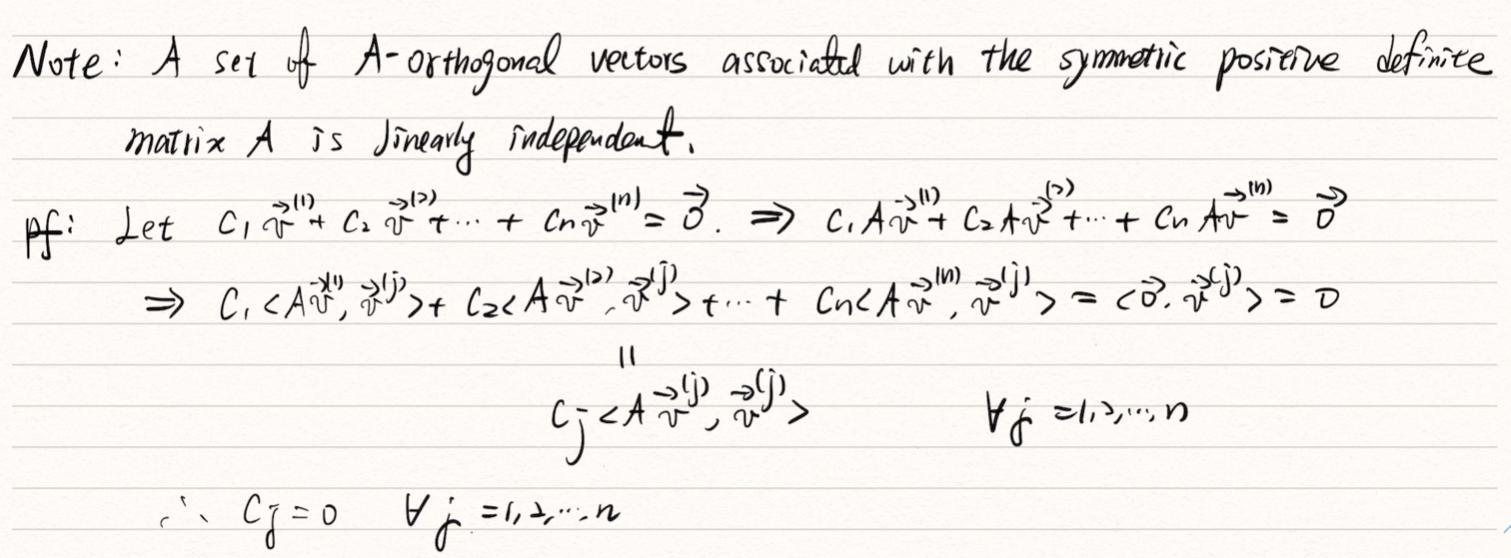 Note: A set of A-orthogonal vectors associated with the symmetric positive definite
matrix A is linearly independent.
pf: Let C₁v⃗⁽¹⁾ + C₂v⃗⁽²⁾ + ⋯ + Cₙv⃗⁽ⁿ⁾ = 0⃗. ⇒ C₁Av⃗⁽¹⁾ + C₂Av⃗⁽²⁾ + ⋯ + CₙAv⃗⁽ⁿ⁾ = 0⃗
⇒ C₁<Av⃗⁽¹⁾, v⃗⁽ʲ⁾> + C₂<Av⃗⁽²⁾, v⃗⁽ʲ⁾> + ⋯ + Cₙ<Av⃗⁽ⁿ⁾, v⃗⁽ʲ⁾> = <0⃗, v⃗⁽ʲ⁾> = 0
||
Cⱼ<Av⃗⁽ʲ⁾, v⃗⁽ʲ⁾> ∀j = 1,2,…,n
∴ Cⱼ = 0 ∀j = 1,2,…,n